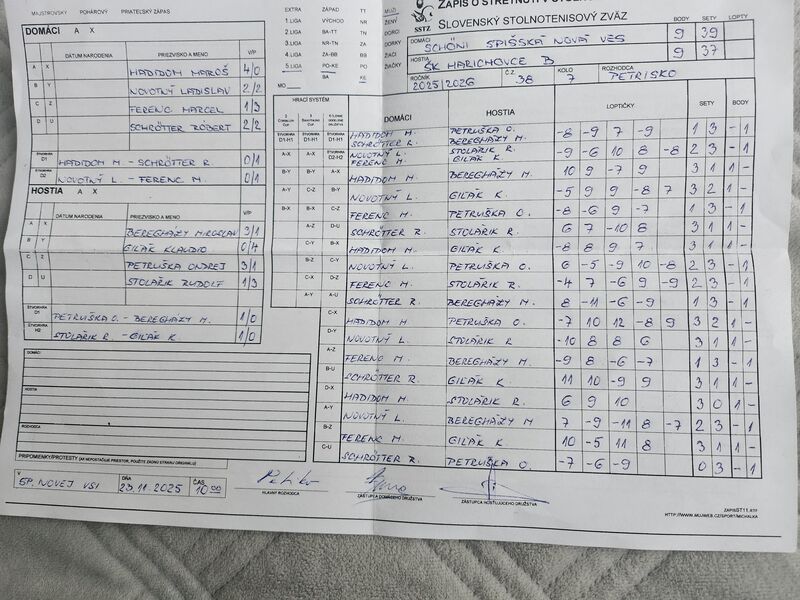 MAJSTROVSKÝ POHÁROVÝ PRIATEĽSKÝ ZÁPAS
ZÁPIS O STRETNUTÍ V STOLN
SLOVENSKÝ STOLNOTENISOVÝ ZVÄZ
SSTZ
EXTRA ZÁPAD TT
1 LIGA VÝCHOD NR
2 LIGA BA-TT TN
3 LIGA NR-TN ZA
4 LIGA ZA-BB BB
5 LIGA PO-KE PO
BA KE
MO
MUŽI
ŽENY
DORCI
DORKY
ŽIACI
ŽIAČKY
BODY SETY LOPTY
DOMÁCI SCHÖNI SPIŠSKÁ NOVÁ VES 9 39
HOSTIA ŠK HARICHOVCE B 9 37
ROČNÍK 2025/2026 Č.Z. 38 KOLO 7 ROZHODCA PETRISKO
DOMÁCI A X
DÁTUM NARODENIA PRIEZVISKO A MENO V/P
A X HADIDOM MAROŠ 4/0
B Y NOVOTNÝ LADISLAV 2/2
C Z FERENC MARCEL 1/3
D U SCHRÖTTER RÓBERT 2/2
ŠTVORHRA D1 HADIDOM M - SCHRÖTTER R 0/1
ŠTVORHRA D2 NOVOTNÝ L. - FERENC M. 0/1
HOSTIA A X
DÁTUM NARODENIA PRIEZVISKO A MENO V/P
A X BEREGHÁZY MIROSLAV 3/1
B Y GIĽÁK KLAUDIO 0/4
C Z PETRUŠKA ONDREJ 3/1
D U STOLÁRIK RUDOLF 1/3
ŠTVORHRA D1 PETRUŠKA O. - BEREGHÁZY M. 1/0
ŠTVORHRA H2 STOLÁRIK R - GIĽÁK K. 1/0
HRACÍ SYSTÉM DOMÁCI HOSTIA LOPTIČKY SETY BODY
ŠTVORHRA D1-H1 ŠTVORHRA D1-H1 HADIDOM M. SCHRÖTTER R. PETRUŠKA O. BEREGHÁZY M. -8 -9 7 -9 1 3 - 1
A-X A-X ŠTVORHRA D2-H2 NOVOTNÝ L. FERENC M. STOLÁRIK R. GIĽÁK K. -9 -6 10 8 -8 2 3 - 1
B-Y B-Y A-X HADIDOM M. BEREGHÁZY M. 10 9 -7 9 3 1 1 -
A-Y C-Z B-Y NOVOTNÝ L. GIĽÁK K. -5 9 9 -8 7 3 2 1 -
B-X B-X C-Z FERENC M. PETRUŠKA O. -8 -6 9 -7 1 3 - 1
A-Z D-U SCHRÖTTER R. STOLÁRIK R. 6 7 -10 8 3 1 1 -
C-Y B-X HADIDOM M. GIĽÁK K. -8 8 9 7 3 1 1 -
B-Z C-Y NOVOTNÝ L. PETRUŠKA O. 6 -5 -9 10 -8 2 3 - 1
C-X D-Z FERENC M. STOLÁRIK R. -4 7 -6 9 -9 2 3 - 1
A-Y A-U SCHRÖTTER R. BEREGHÁZY M. 8 -11 -6 -9 1 3 - 1
C-X HADIDOM M. PETRUŠKA O. -7 10 12 -8 9 3 2 1 -
D-Y NOVOTNÝ L. STOLÁRIK R -10 8 8 6 3 1 1 -
A-Z FERENC M. BEREGHÁZY M. -9 8 -6 -7 1 3 - 1
B-U SCHRÖTTER R. GIĽÁK K. 11 10 -9 9 3 1 1 -
D-X HADIDOM M. STOLÁRIK R. 6 9 10 3 0 1 -
A-Y NOVOTNÝ L. BEREGHÁZY M 7 -9 -11 8 -7 2 3 - 1
B-Z FERENC M. GIĽÁK K 10 -5 11 8 3 1 1 -
C-U SCHRÖTTER R. PETRUŠKA O. -7 -6 -9 0 3 - 1
DOMÁCI
HOSTIA
ROZHODCA
PRIPOMIENKY/PROTESTY (AK NEPOSTAČUJE PRIESTOR, POUŽITE ZADNÚ STRANU ORIGINÁLU)
V SP. NOVEJ VSI DŇA 23.11.2025 ČAS 10:00
HLAVNÝ ROZHODCA
ZÁSTUPCA DOMÁCEHO DRUŽSTVA
ZÁSTUPCA HOSŤUJÚCEHO DRUŽSTVA
ZAPISST11.RTF
HTTP://WWW.MUJWEB.CZ/SPORT/MICHALKA